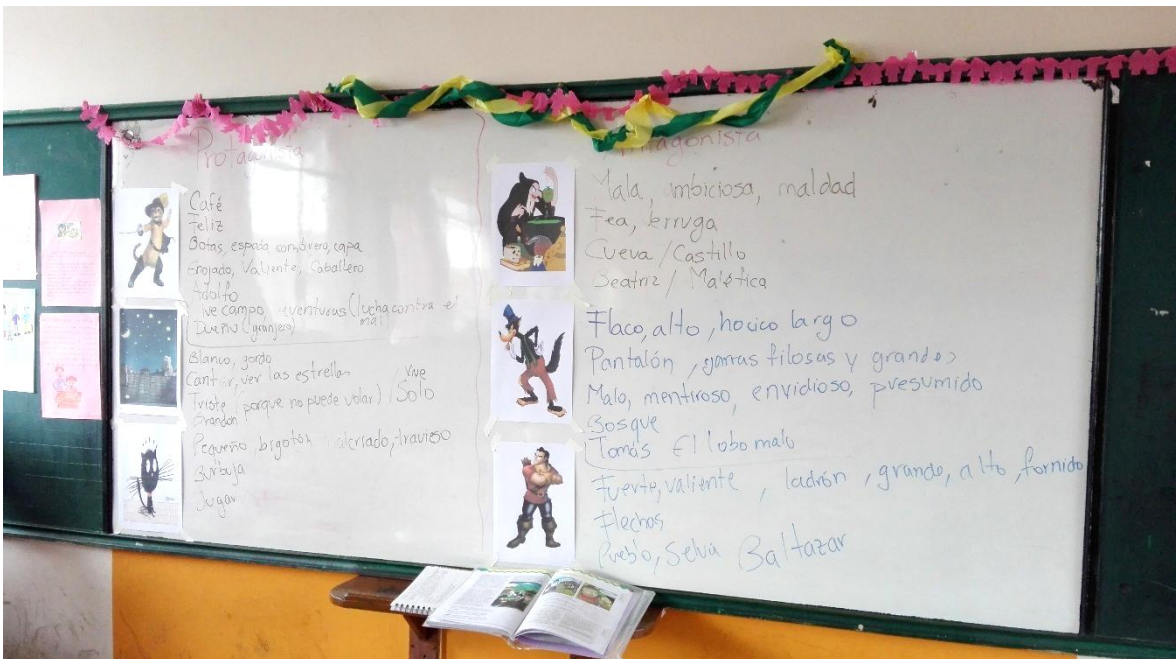 Protagonista
Café
Feliz
Botas, espada, sombrero, capa
Enojado, Valiente, Caballero
Adolfo
Vive campo, aventuras (lucha contra el
mal)
Dueño (granjero)
Blanco, gordo
Cantar, ver las estrellas
Triste (porque no puede volar) / Vive
Solo
Brandon
Pequeño, bigotón, malcriado, travieso
Burbuja
Jugar
Antagonista
Mala, ambiciosa, maldad
Fea, berruga
Cueva / Castillo
Beatriz / Maléfica
Flaco, alto, hocico largo
Pantalón, garras filosas y grandes
Malo, mentiroso, envidioso, presumido
Bosque
Tomás El lobo malo
Fuerte, valiente, ladrón, grande, alto, fornido
Flechas
Pueblo, Selva Baltazar